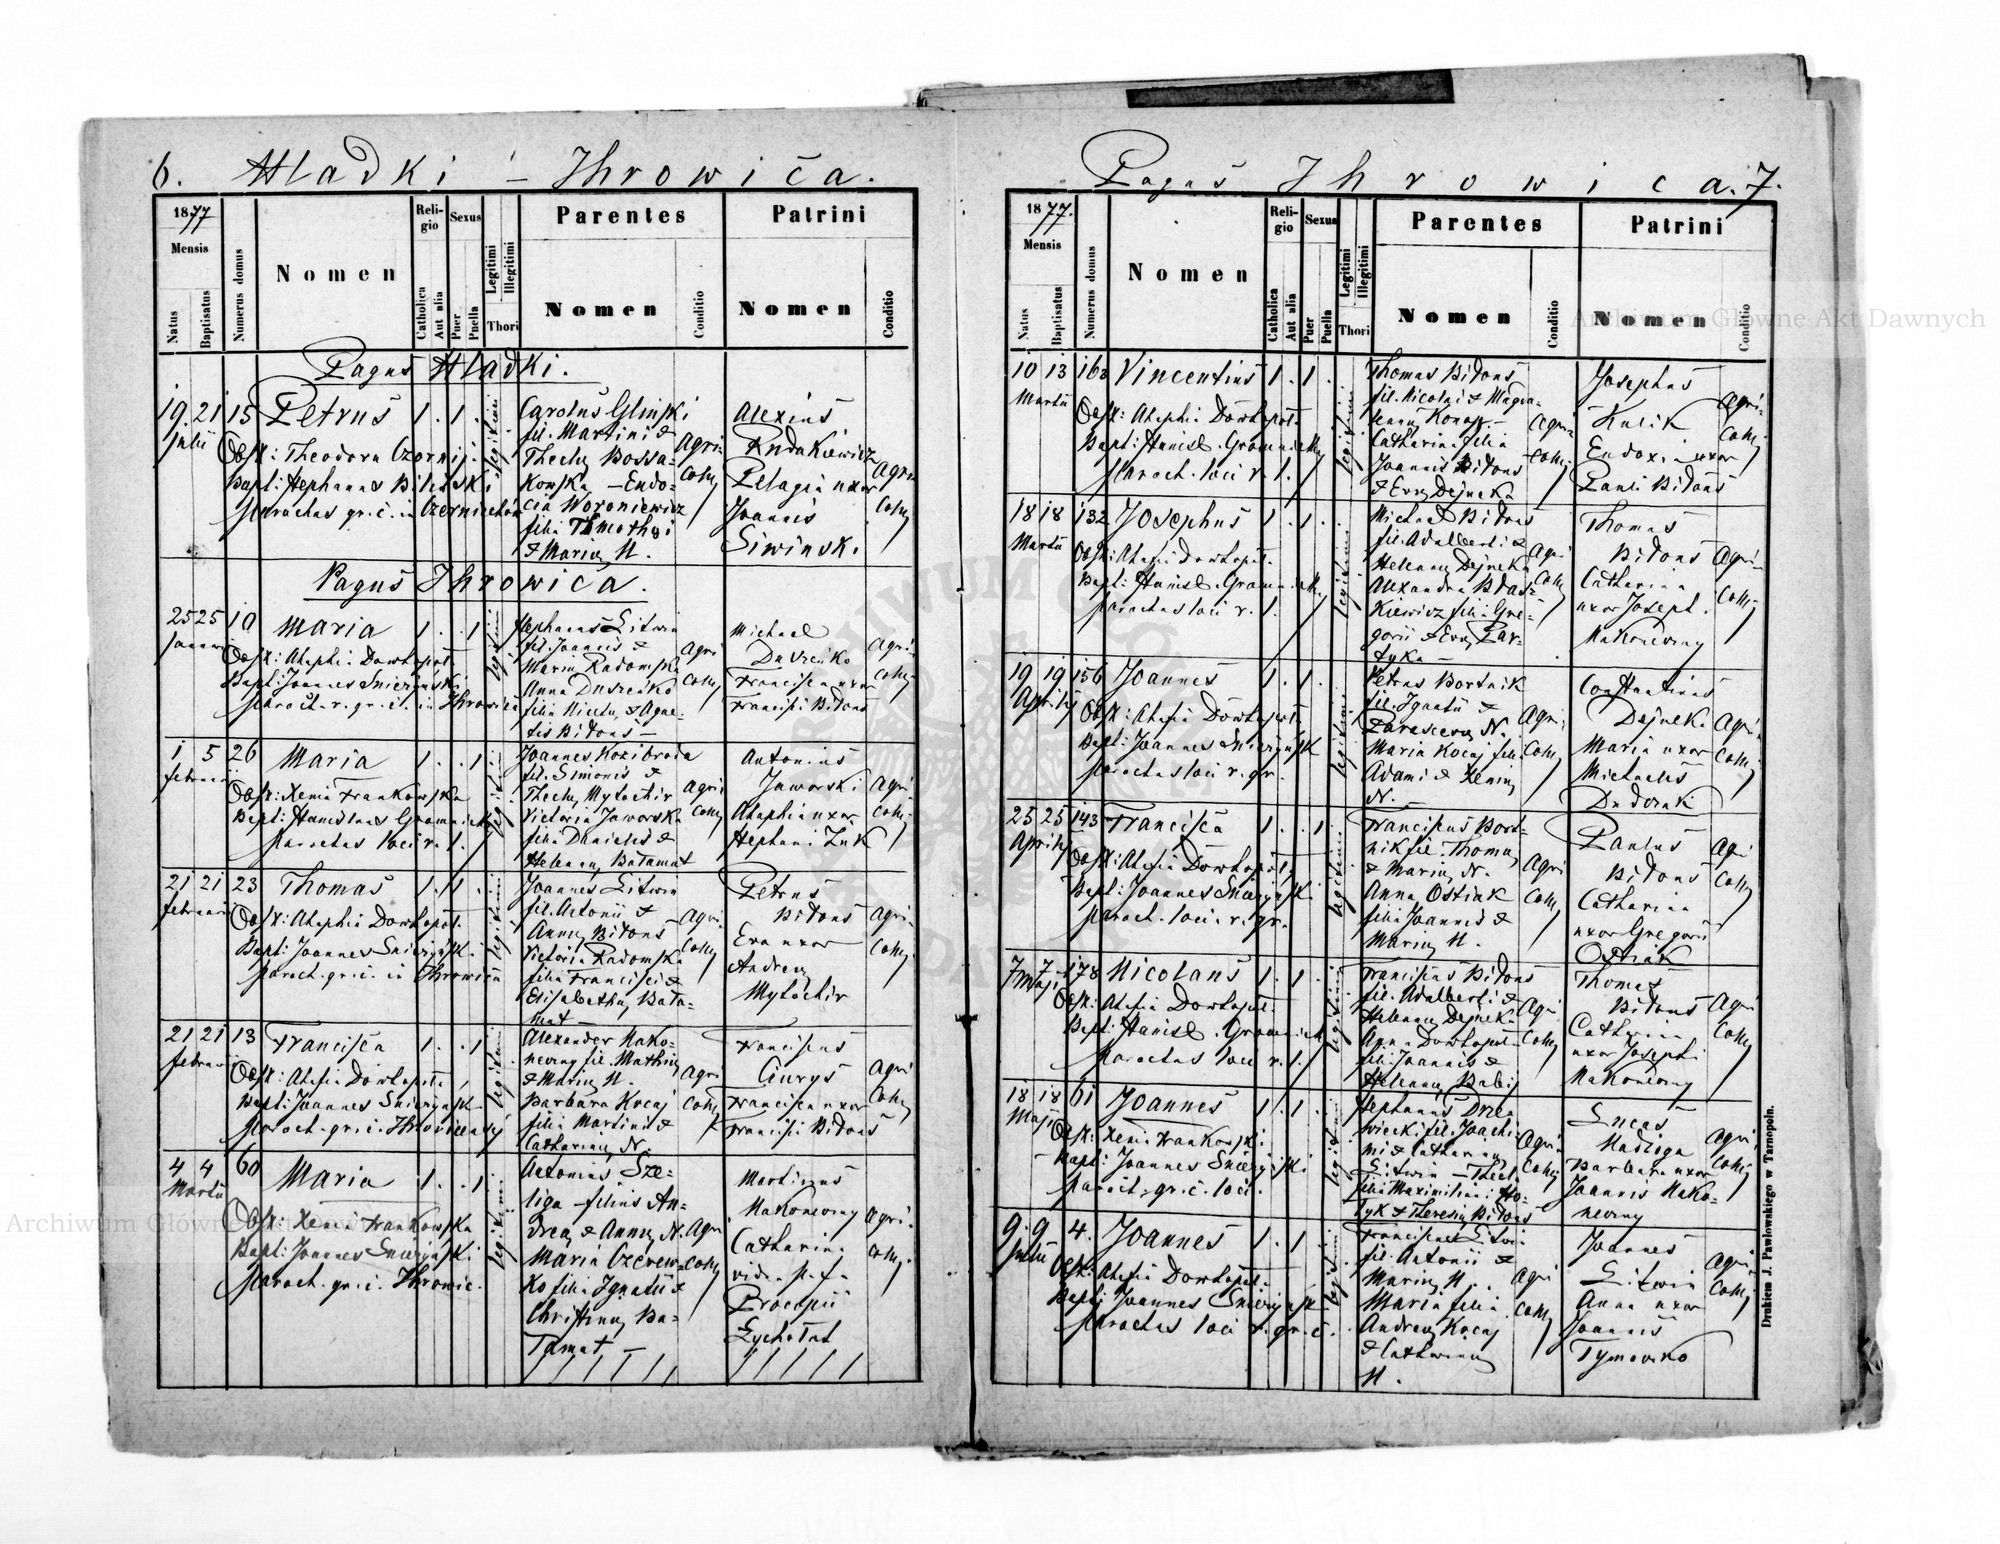 6. Hladki - Ihrowica.
1877
Mensis
Natus
Baptisatus
Numerus domus
Nomen
Religio
Catholica
Aut alia
Sexus
Puer
Puella
Legitimi
Illegitimi
Thori
Parentes
Nomen
Conditio
Patrini
Nomen
Conditio
Pagus Hladki.
19 21 15 Petrus 1. 1.
Julii
Obst: Theodora Czornij
Bapt: Stephanus Bilinski
parochus gr. c. in Czernichów
legitimi
Carolus Glinski
fil. Martini &
Theclae Bossa-
kowska - Eudo-
cia Woroniewicz
filia Timothei
& Mariae N.
Agri
colae
Alexius
Rudakiewicz
Pelagia uxor
Joannis
Siwinski
Agri
colae
Pagus Ihrowica.
25 25 10 Maria 1. .1
Januarii
Obst: Ataphia Dowhopoł.
Bapt: Joannes Snieżynski
paroch. r. gr. c. in Ihrowica
legitimi
Stephanus Litwin
fil. Joannis &
Mariae Radomska
Anna Duszeńko
filia Nicetae & Agne-
tis Bidons -
Agri
colae
Michael
Duszeńko
Francisca uxor
Francisci Bidons
Agri
colae
1 5 26 Maria 1. .1
februarii
Obst: Xenia Frankowska
Bapt: Stanislaus Gromnicki
parochus loci r. l.
legitimi
Joannes Kozibroda
fil. Simonis &
Theclae Mytochir
Victoria Jaworska
filia Danielis &
Helenae Batamut
Agri
colae
Antonius
Jaworski
Ataphia uxor
Stephani Żuk
Agri
colae
21 21 23 Thomas 1. 1.
februarii
Obst: Ataphia Dowhopoł.
Bapt: Joannes Snieżynski
paroch. gr. c. in Ihrowica
legitimi
Joannes Litwin
fil. Antonii &
Annae Bidons
Victoria Radomska
filia Francisci &
Elisabethae Bata-
mut -
Agri
colae
Petrus
Bidons
Eva uxor
Andreae
Mytochir
Agri
colae
21 21 13 Francisca 1. .1
februarii
Obst: Atafia Dowhopoła
Bapt: Joannes Snieżynski
paroch. gr. c. Ihrovicensis
legitimi
Alexander Mako-
neczny fil. Mathiae
& Mariae N.
Barbara Kocaj
filia Martini &
Catharinae N.
Agri
colae
Franciscus
Ciurys
Francisca uxor
Francisci Bidons
Agri
colae
4 4 60 Maria 1. .1
Martii
Obst: Xenia Frankowska
Bapt: Joannes Snieżynski
paroch. gr. c. Ihrowic.
legitimi
Antonius Sze-
liga - filius An-
dreae & Annae N.
Maria Czerew-
ko filia Ignatii &
Christinae Ba-
tamut -
Agri
colae
Martinus
Makoneczny
Catharina
vidua p. f.
Procopii
Łychołat
Agri
colae
Pagus Ihrowica. 7.
1877.
Mensis
Natus
Baptisatus
Numerus domus
Nomen
Religio
Catholica
Aut alia
Sexus
Puer
Puella
Legitimi
Illegitimi
Thori
Parentes
Nomen
Conditio
Patrini
Nomen
Conditio
10 13 Vincentius 1. 1.
Martii
Obst: Ataphia Dowhopoł.
Bapt: Stanisl. Gromnicki
paroch. loci r. l.
legitimi
Thomas Bidons
fil. Nicolai & Magda-
lenae Konop -
Catharina filia
Joannis Bidons
& Evae Dejneka
Agri
colae
Josephus
Kulik
Endoxia uxor
Pauli Bidons
Agri
colae
18 18 132 Josephus 1. 1.
Martii
Obst: Atafia Dowhopoł.
Bapt: Stanisl. Gromnicki
parochus loci r. l.
legitimi
Michael Bidons
fil. Adalberti &
Helenae Dejneka
Alexandra Błasz-
kiewicz filia Gre-
gorii & Evae Par-
tyka -
Agri
colae
Thomas
Bidons
Catharina
uxor Joseph.
Makoneczny
Agri
colae
19 19 156 Joannes 1. 1.
Aprilis
Obst: Atafia Dowhopoła
Bapt: Joannes Snieżynski
parochus loci r. gr.
legitimi
Petrus Bortnik
fil. Ignatii &
Parascevae N.
Maria Kocaj filia
Adami & Xeniae
N. -
Agri
colae
Constantinus
Dejneka
Maria uxor
Michaelis
Agri
colae
25 25 143 Francisca 1. .1
Aprilis
Obst: Atafia Dowhopoła
Bapt: Joannes Snieżynski
paroch. loci r. gr.
legitimi
Franciscus Bort-
nik fil. Thomae
& Mariae N.
Anna Ostiak
filia Joannis &
Mariae N.
Agri
colae
Paulus
Bidons
Catharina
uxor Gregorii
Ostiak
Agri
colae
7 7 178 Nicolaus 1. 1.
Maji
Obst: Atafia Dowhopoł.
Bapt: Stanisl. Gromnicki
parochus loci r. l.
legitimi
Franciscus Bidons
fil. Adalberti &
Helenae Dejneka
Anna Dowhopoła
filia Joannis &
Helenae Babij
Agri
colae
Thomas
Bidons
Catharina
uxor Josephi
Makoneczny
Agri
colae
18 18 61 Joannes 1. 1.
Maji
Obst: Xenia Frankowski
Bapt: Joannes Snieżynski
paroch. gr. c. loci.
legitimi
Stephanus Drze-
wiecki fil. Joachi-
mi & Catharinae
Litwin - Thecla
filia Maximiliani Ho-
tyk & Theresiae Bidons
Agri
colae
Lucas
Madiga
Barbara uxor
Joannis Mako-
neczny
Agri
colae
9 9 4. Joannes 1. 1.
Julii
Obst: Atafia Dowhopoł.
Bapt: Joannes Snieżynski
parochus loci r. gr. c.
legitimi
Franciscus Litwin
fil. Antonii &
Mariae N.
Maria filia
Andreae Kocaj
& Catharinae
N.
Agri
colae
Joannes
Litwin
Anna uxor
Joannis
Tymoczko
Agri
colae
Drukiem J. Pawłowskiego w Tarnopolu.
Archiwum Główne Akt Dawnych